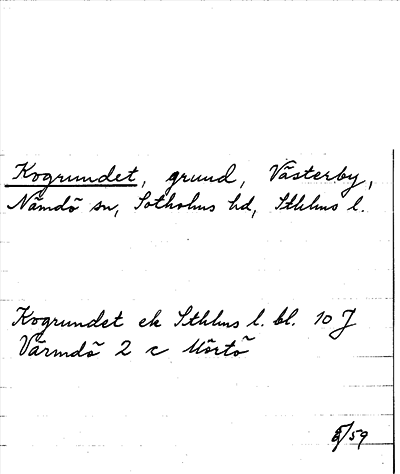 Kogrundet, grund, Västerby,
Nämdö sn, Sotholms hd, Sthlms l.
Kogrundet ek Sthlms l. bl. 10 J
Värmdö 2 c Mörtö
/59